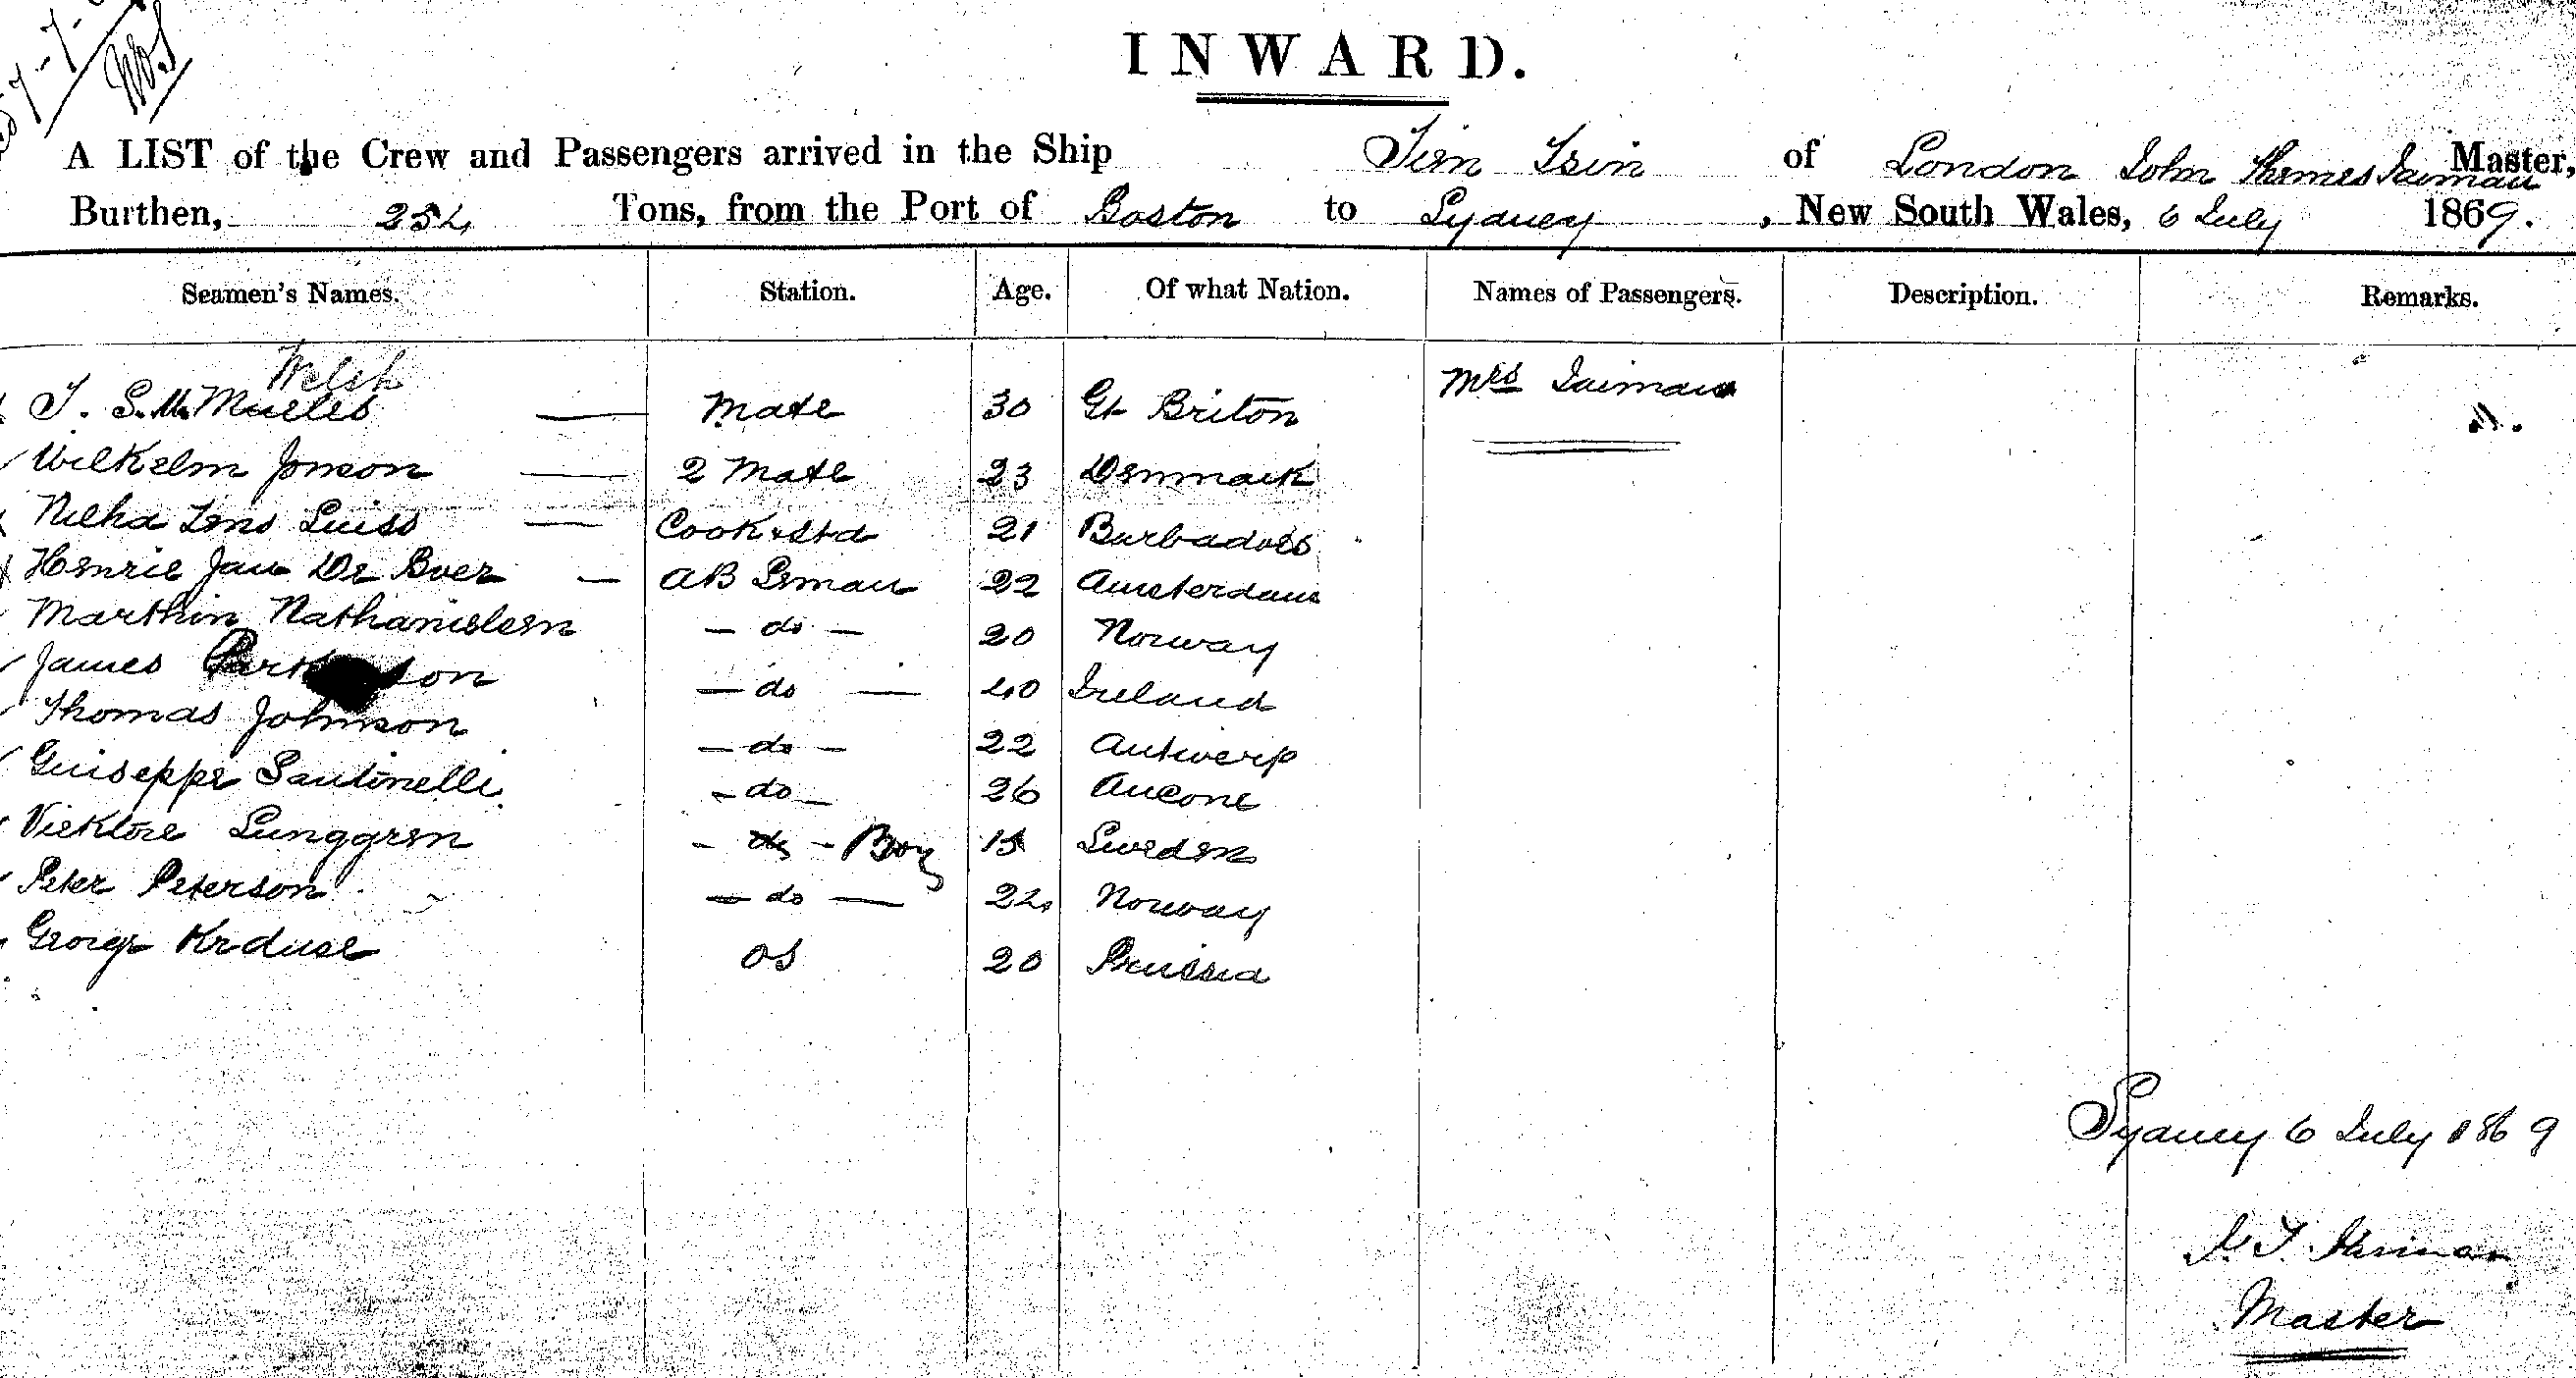 INWARD.
A LIST of the Crew and Passengers arrived in the Ship Tien Tsin of London John Thomas Master,
Burthen, 254 Tons, from the Port of Boston to Sydney, New South Wales, 6 July 1869.
Seamen's Names. Station. Age. Of what Nation. Names of Passengers. Description. Remarks.
Welsh
Mate 30 Gt Briton Mrs
Wilhelm Jonson 2 Mate 23 Denmark
Cook & Std 21 Barbadoes
Henrie Jan De Boer AB Seman 22 Amsterdam
Marthin Nathanielsen - do - 20 Norway
James - do - 40 Ireland
Thomas Johnson - do - 22 Antwerp
Guiseppe Santinelli - do - 26 Ancone
Vicktore Lunggren - do - Boy 15 Sweden
Peter Peterson - do - 24 Norway
George Krause OS 20 Prussia
Sydney 6 July 1869
Master